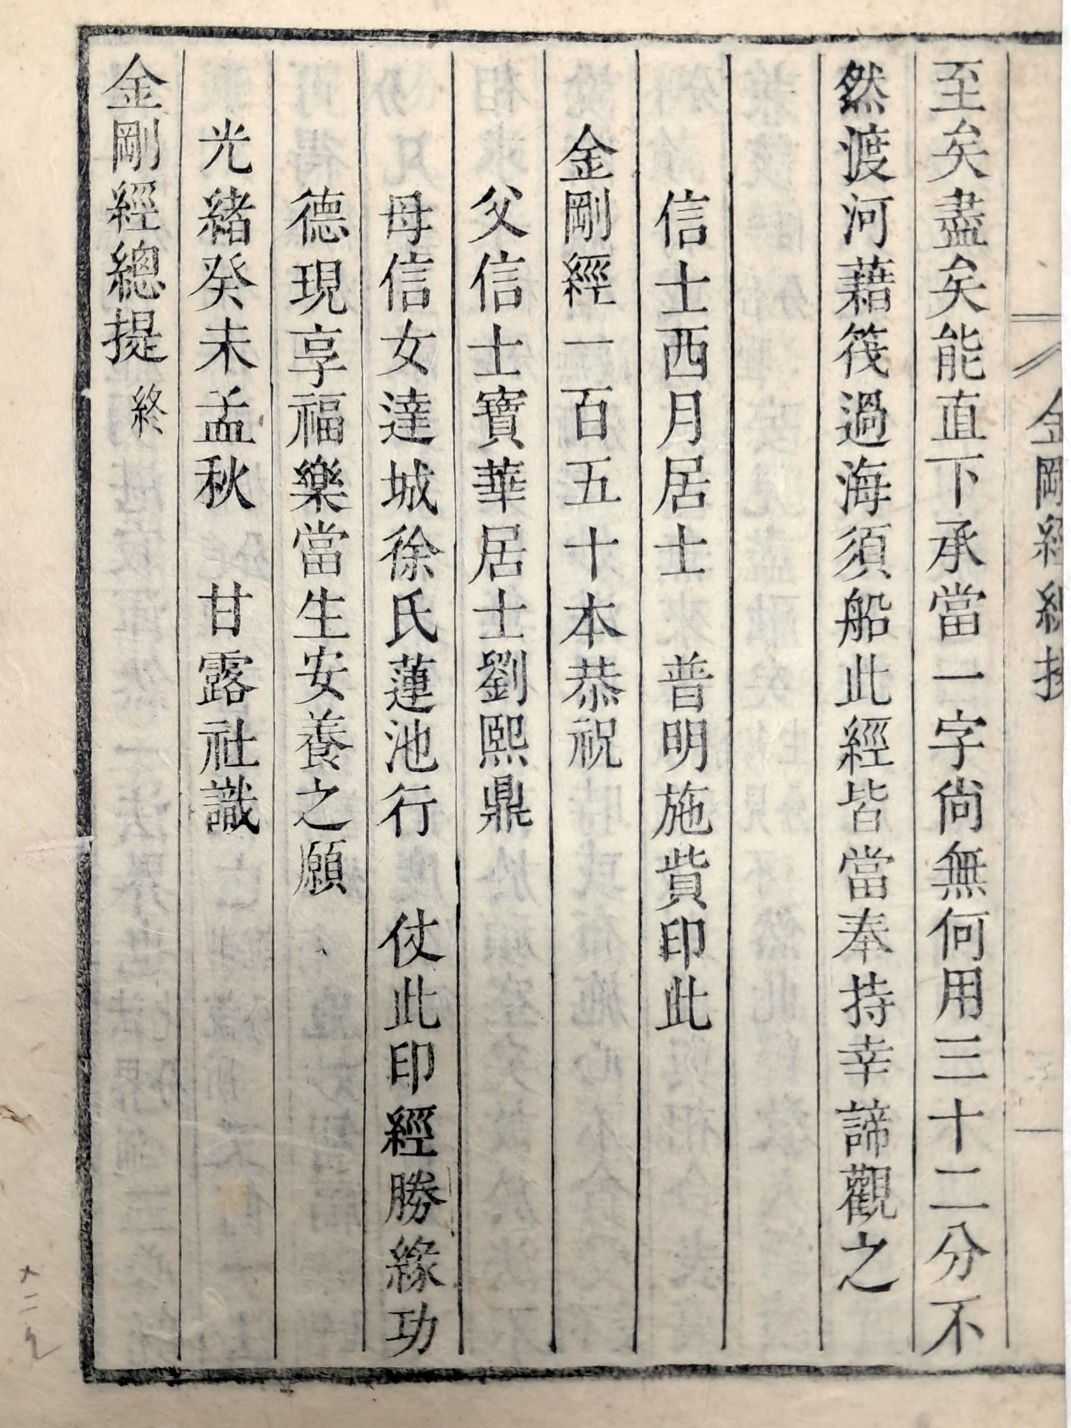 金剛經總提
至矣盡矣能直下承當一字尙無何用三十二分不
然渡河藉筏過海須船此經皆當奉持幸諦觀之
信士西月居士 普明施貲印此
金剛經一百五十本恭祝
父信士寶華居士劉熙鼎
母信女達城徐氏蓮池行 仗此印經勝緣功
德現享福樂當生安養之願
光緖癸未孟秋 甘露社識
金剛經總提終